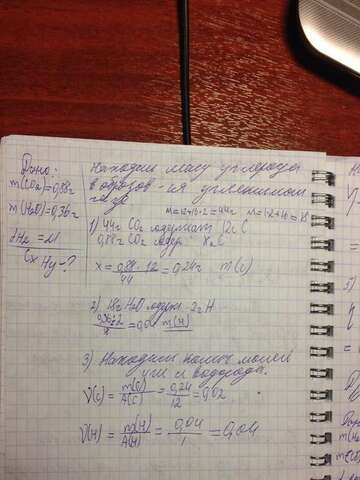 Дано:
m(CO2)=0,88г
m(H2O)=0,36г
CxHy-?
Находим массу углерода
в образов-ся углекислом
газе
M=12+16·2=44г
1) 44г CO2 содержат 12г C
0,88г CO2 содер. xг C
x = 0,88·12/44 = 0,24г m(C)
2) 18г H2O содерж - 2г H
0,36·2/18 = 0,04 m(H)
3) Находим колич молей
угл и водорода.
ν(C) = m(C)/A(C) = 0,24/12 = 0,02
ν(H) = m(H)/A(H) = 0,04/1 = 0,04